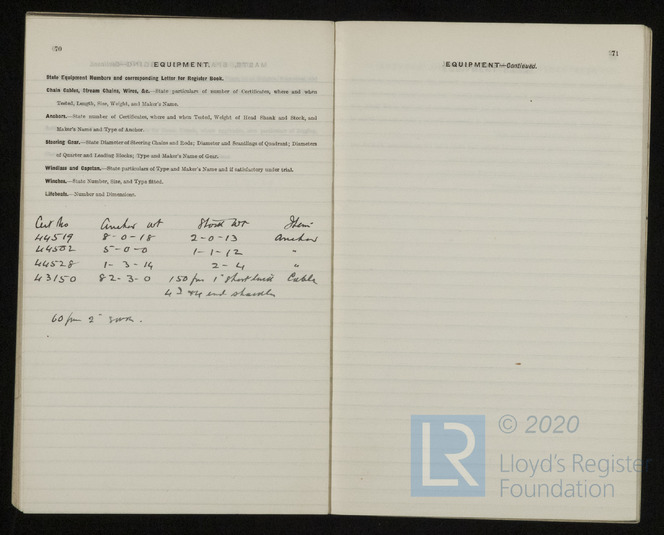 70
EQUIPMENT.
State Equipment Numbers and corresponding Letter for Register Book.
Chain Cables, Stream Chains, Wires, &c.—State particulars of number of Certificates, where and when
Tested, Length, Size, Weight, and Maker's Name.
Anchors.—State number of Certificates, where and when Tested, Weight of Head Shank and Stock, and
Maker's Name and Type of Anchor.
Steering Gear.—State Diameter of Steering Chains and Rods; Diameter and Scantlings of Quadrant; Diameters
of Quarter and Leading Blocks; Type and Maker's Name of Gear.
Windlass and Capstan.—State particulars of Type and Maker's Name and if satisfactory under trial.
Winches.—State Number, Size, and Type fitted.
Lifeboats.—Number and Dimensions.
Cert No Anchor wt Stock wt Item
44519 8-0-18 2-0-13 Anchor
44502 5-0-0 1-1-12 "
44528 1-3-14 2-4 "
43150 82-3-0 150 fm 1" short link Cable
end shackles
60 fm 2"
71
EQUIPMENT—Continued.
LR
© 2020
Lloyd's Register
Foundation